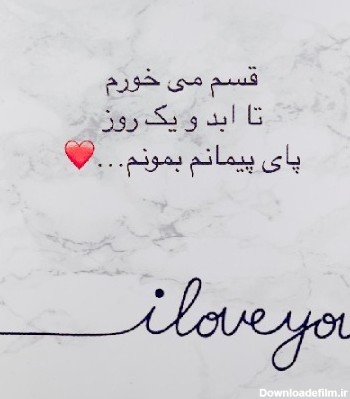 قسم می خورم
تا ابد و یک روز
پای پیمانم بمونم...❤️
i love you
Downloadefilm.ir